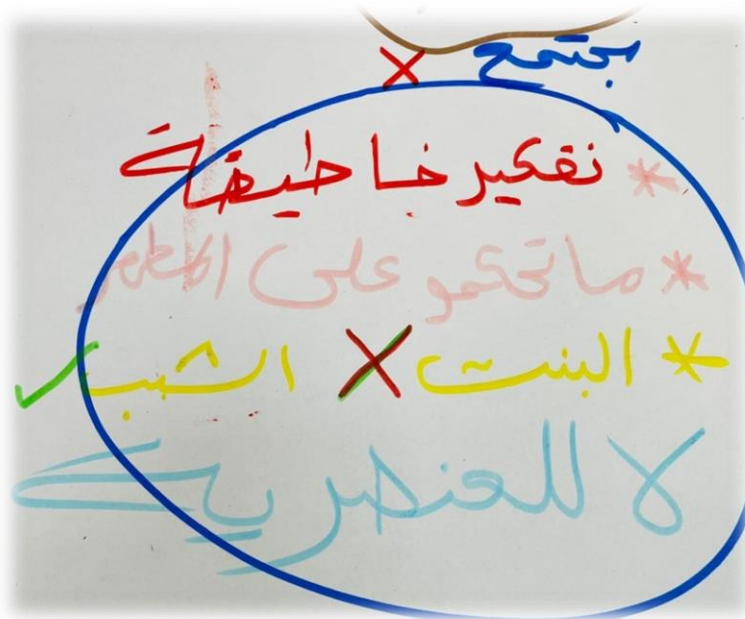 مجتمع
* نفكير خاطيفة
* ما تحكمو على المظهر
* البنت الشب
لا للعنصرية